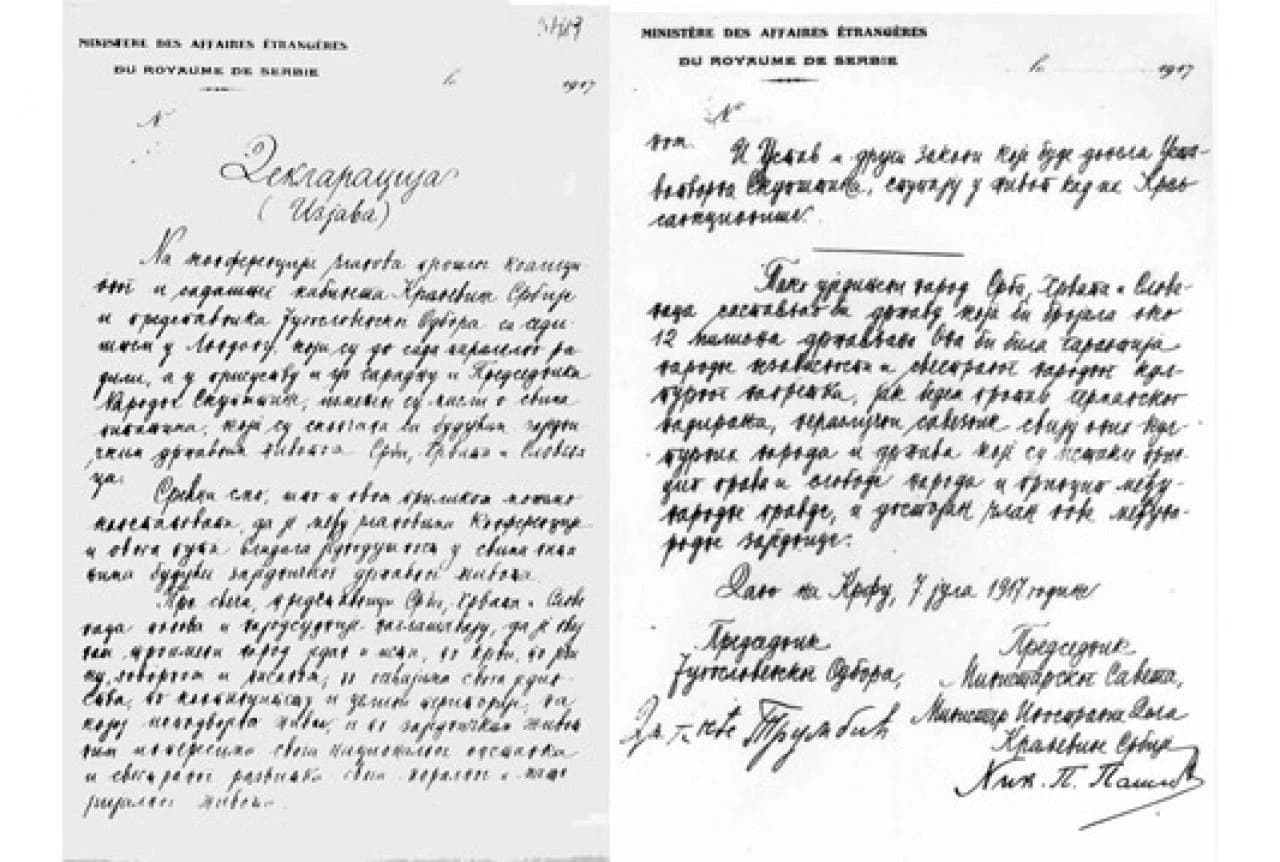 MINISTÈRE DES AFFAIRES ÉTRANGÈRES
DU ROYAUME DE SERBIE
1917
N
Декларација
(Изјава)
На конференцији чланова прошле коалици-
оне и садашњег кабинета Краљевине Србије
и представника Југословенског Одбора са седи-
штем у Лондону, који су до сада паралелно ра-
дили, а у присуству и уз сарадњу и Председника
Народне Скупштине, измењене су мисли о свима
питањима, која су скопчана са будућим заједни-
чким државним животом Срба, Хрвата и Словена-
ца.
Срећни смо, што и овом приликом можемо
констатовати, да је међу члановима Конференције
и овога пута владала једнодушност у свима пита-
њима будућег заједничког државног живота.
Пре свега, представници Срба, Хрвата и Слове-
наца понова и најодсудније наглашавају, да је овај
наш троимени народ један и исти, по крви, по јези-
ку, говорном и писаном, по осећајима свога једин-
ства, по континуитету и целини територије, на
којој неподвојено живи, и по заједничким живот-
ним интересима свога националног опстанка
и свестраног развитка свога моралног и мате-
ријалног живота.
MINISTÈRE DES AFFAIRES ÉTRANGÈRES
DU ROYAUME DE SERBIE
1917
N
ном. И Устав и други закони које буде донела Уста-
вотворна Скупштина, ступају у живот кад их Краљ
санкционише.
Тако уједињени народ Срба, Хрвата и Слове-
наца састављао би државу која би бројала око
12 милиона држављана. Она би била гаранција
народне независности и свестраног народног кул-
турног напретка, јак бедем против германског
надирања, неразлучни савезник свију оних кул-
турних народа и држава које су истакле прин-
цип права и слободе народа и принцип међу-
народне правде, и достојан члан нове међуна-
родне заједнице.
Дано на Крфу, 7 јула 1917 године
Председник
Југословенског Одбора,
Трумбић
Председник
Министарског Савета,
Министар Иностраних Дела
Краљевине Србије
Ник. П. Пашић